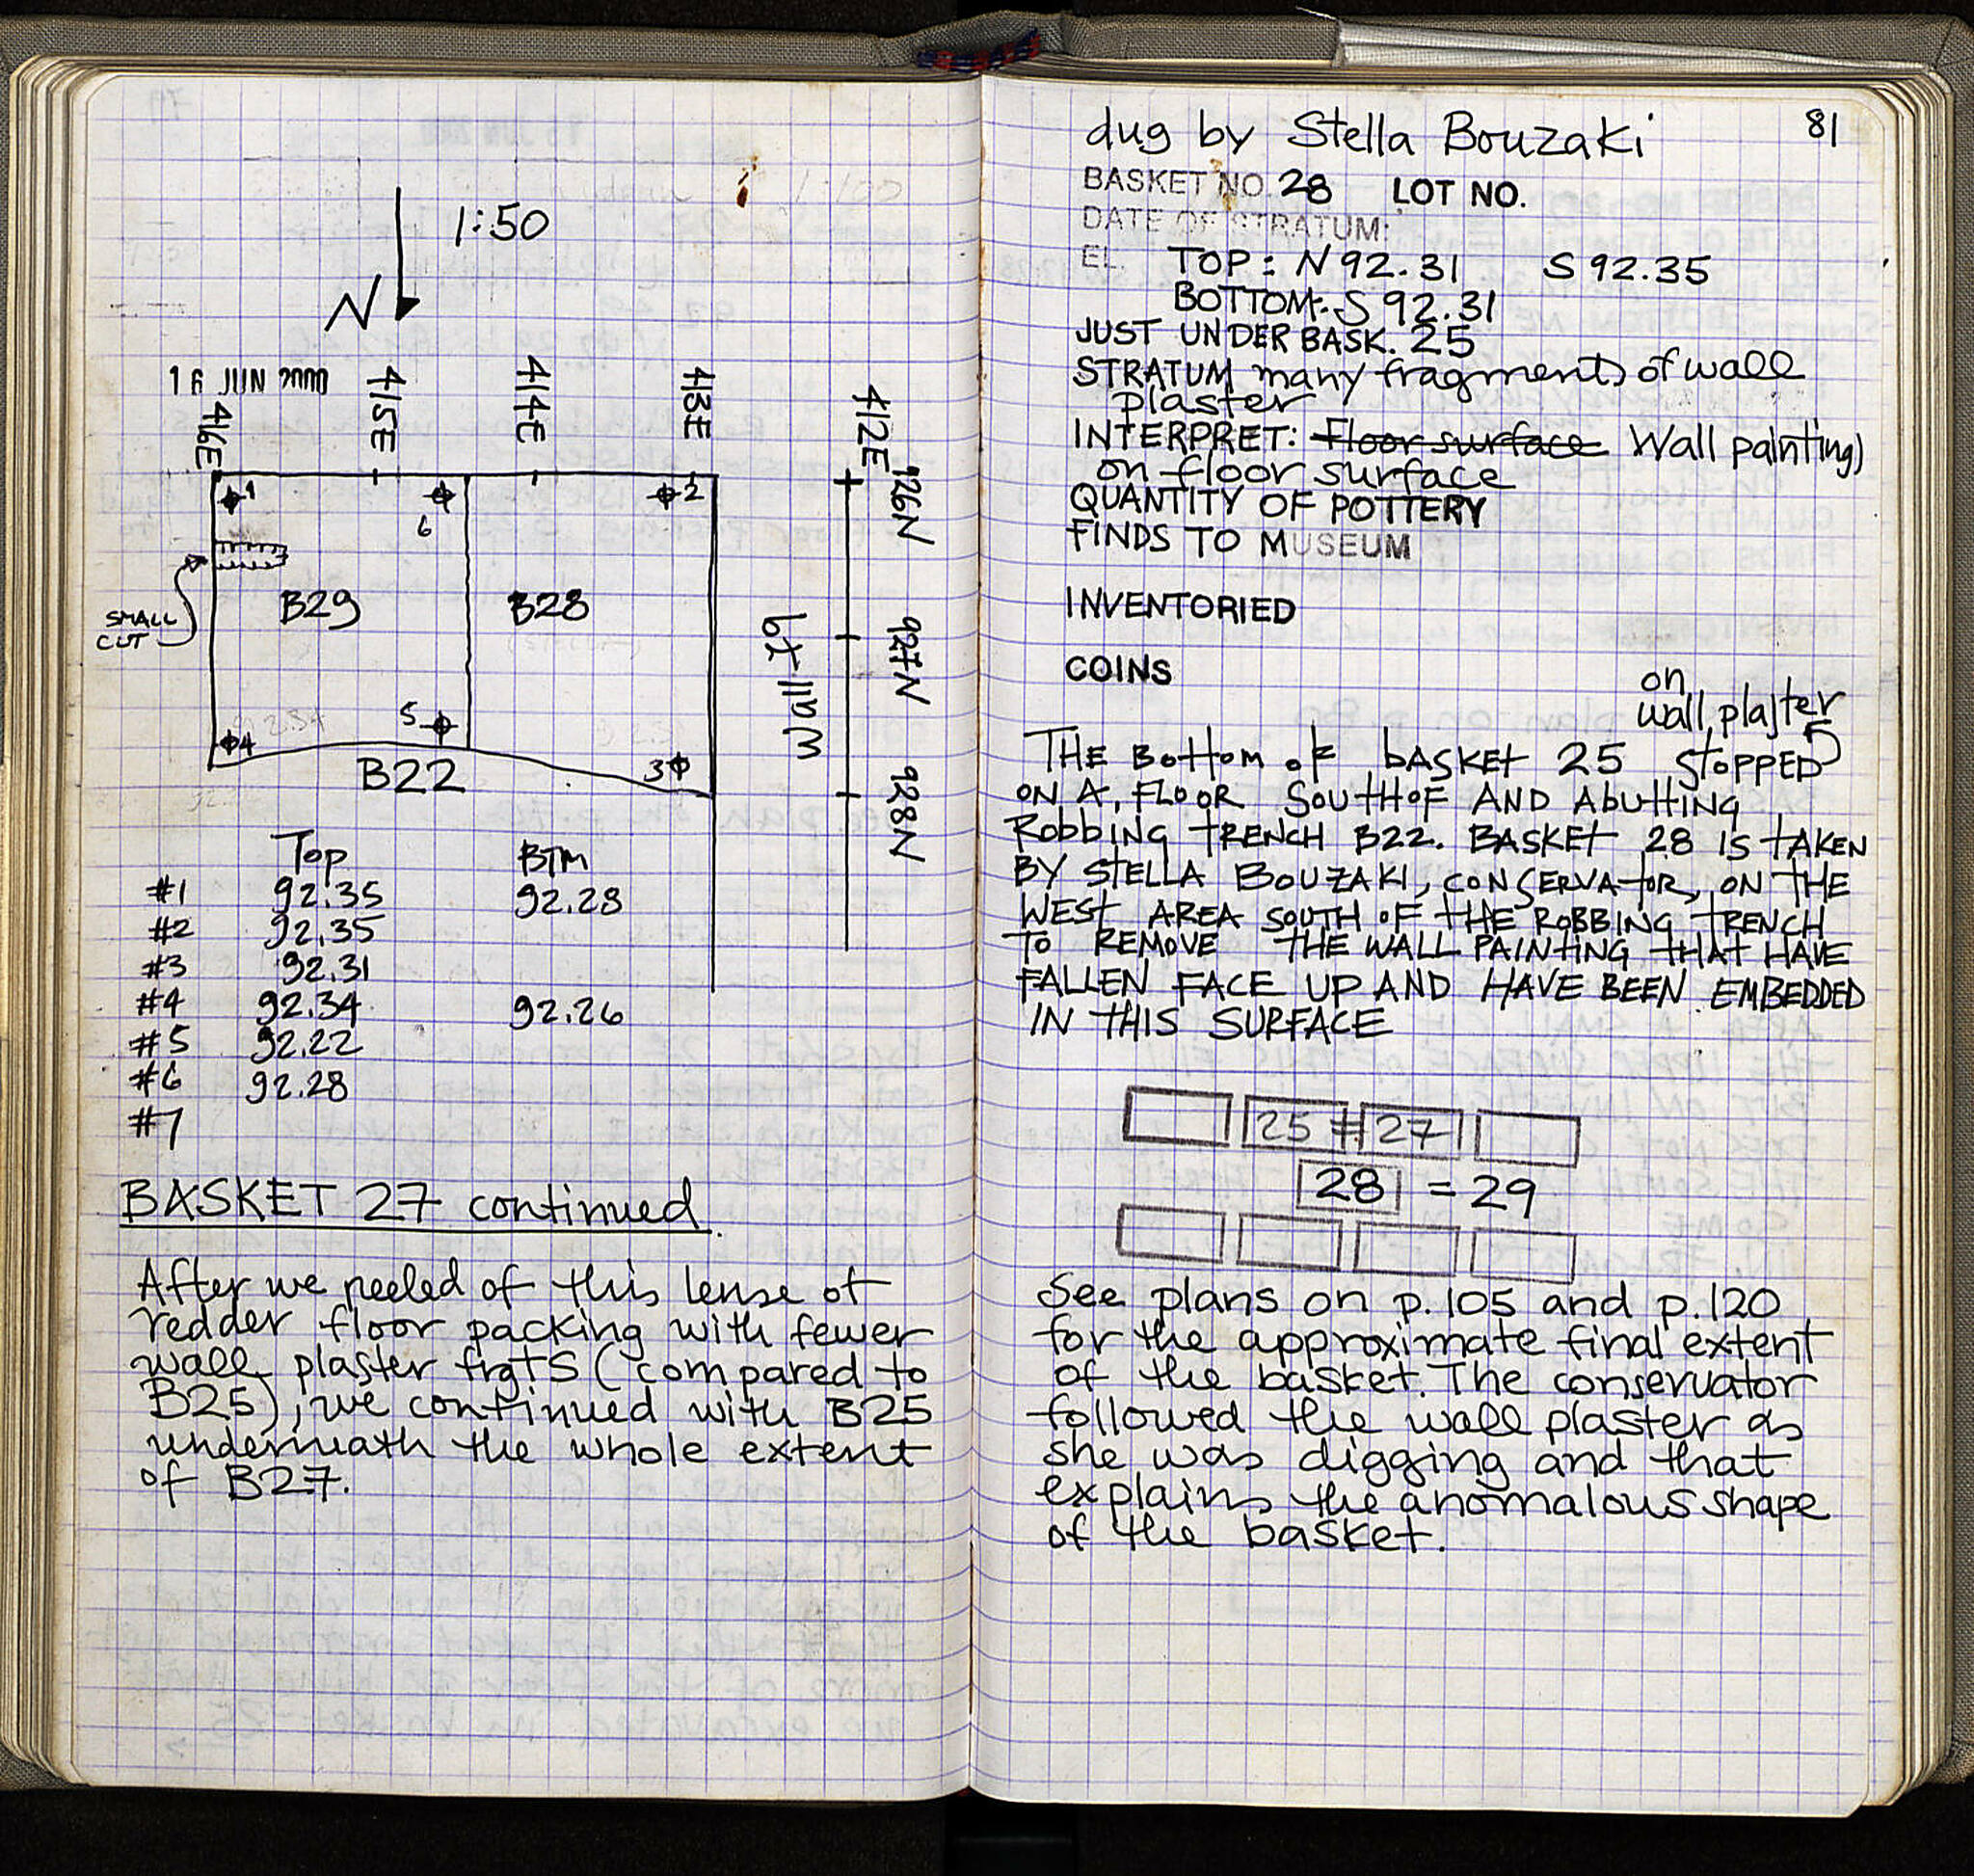 1:50
N
16 JUN 2000
416E
415E
414E
413E
412E
926N
927N
928N
1
6
2
B29
B28
SMALL
CUT
5
4
3
B22
Wall 79
Top BTM
#1 92.35 92.28
#2 92.35
#3 92.31
#4 92.34 92.26
#5 92.22
#6 92.28
#7
BASKET 27 continued
After we peeled of this lense of
redder floor packing with fewer
wall plaster frgts (compared to
B25), we continued with B25
underneath the whole extent
of B27.
81
dug by Stella Bouzaki
BASKET NO. 28 LOT NO.
DATE OF STRATUM:
EL. TOP: N 92.31 S 92.35
BOTTOM: S 92.31
JUST UNDER BASK. 25
STRATUM many fragments of wall
plaster
INTERPRET: Floor surface Wall paintings
on floor surface
QUANTITY OF POTTERY
FINDS TO MUSEUM
INVENTORIED
COINS
on
wall plaster
THE Bottom of basket 25 stopped
ON A FLOOR SOUTH OF AND Abutting
Robbing TRENCH B22. BASKET 28 IS TAKEN
BY STELLA BOUZAKI, CONSERVATOR, ON THE
WEST AREA SOUTH OF THE ROBBING TRENCH
TO REMOVE THE WALL PAINTING THAT HAVE
FALLEN FACE UP AND HAVE BEEN EMBEDDED
IN THIS SURFACE
25 # 27
28 = 29
See plans on p.105 and p.120
for the approximate final extent
of the basket. The conservator
followed the wall plaster as
she was digging and that
explains the anomalous shape
of the basket.